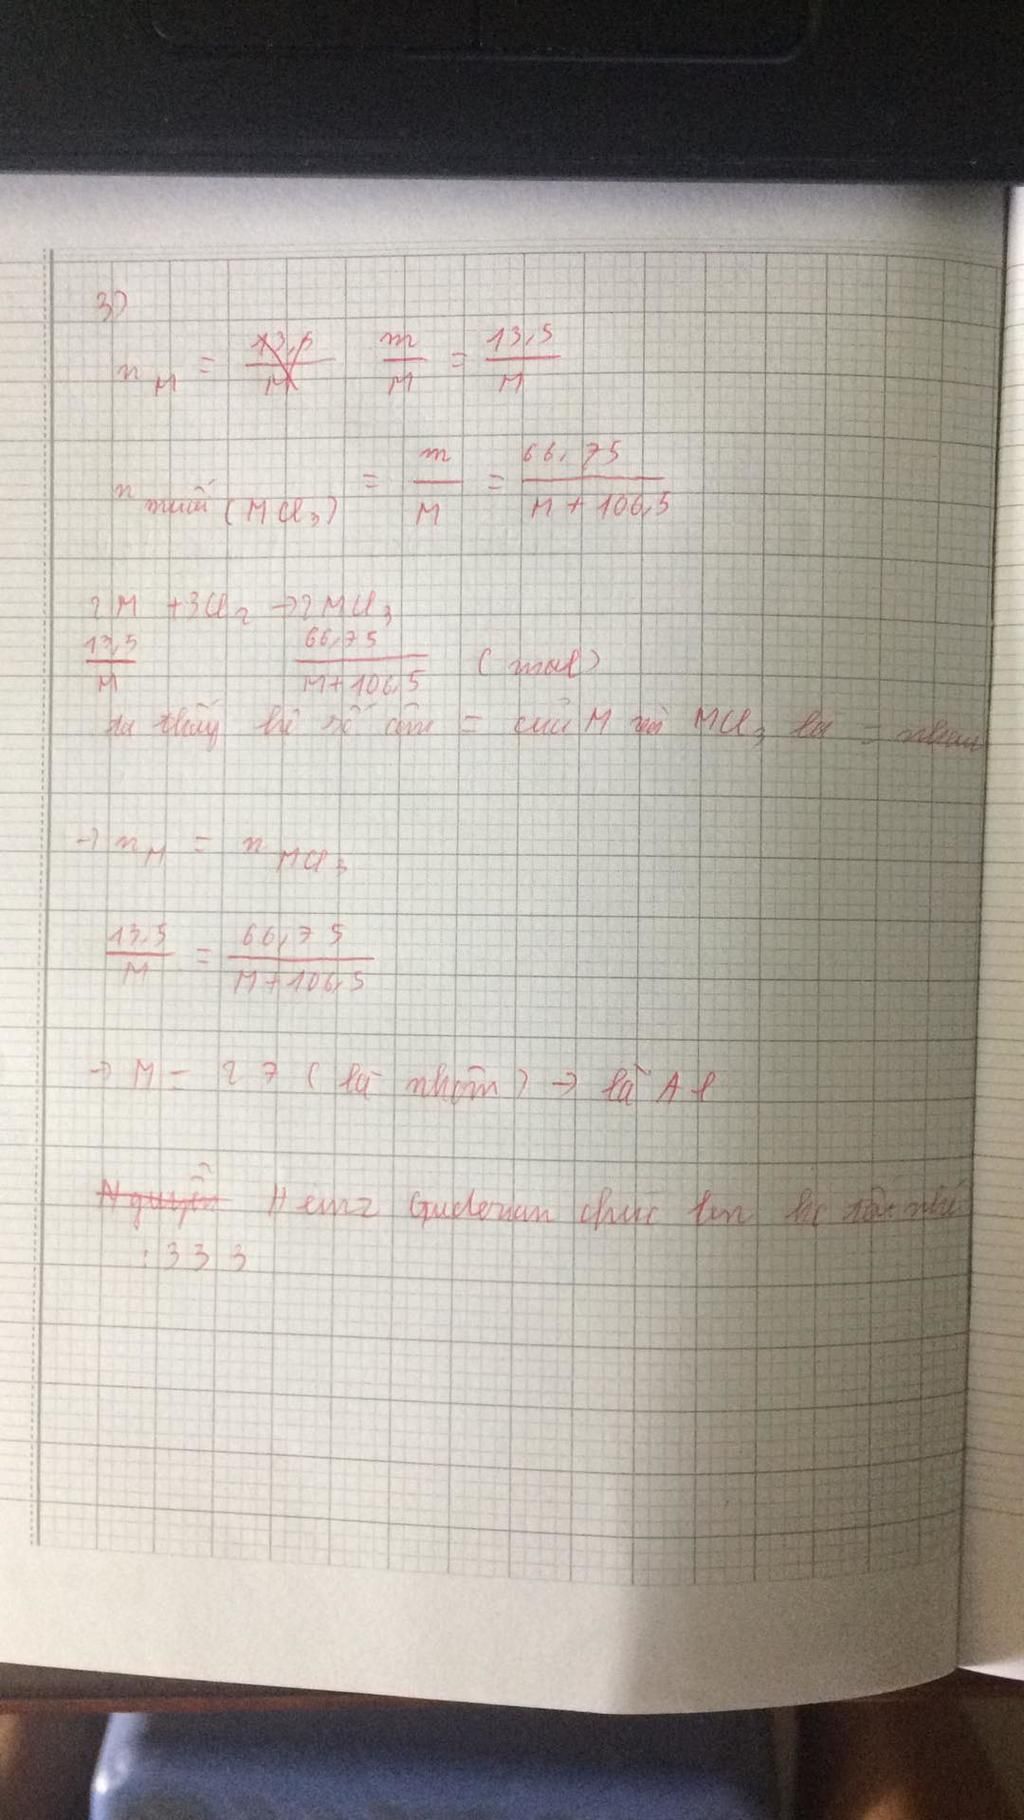 3)
n M = 13,5/M m/M = 13,5/M
n muối (MCl3) = m/M = 66,75/M + 106,5
2M + 3Cl2 → 2MCl3
13,5/M 66,75/M + 106,5 (mol)
ta thấy hệ số cân = của M và MCl3 là = nhau
→ nM = nMCl3
13,5/M = 66,75/M + 106,5
→ M = 27 (là nhôm) → là Al
Nguyễn Heinz Guderian chúc tốt nhé
:333